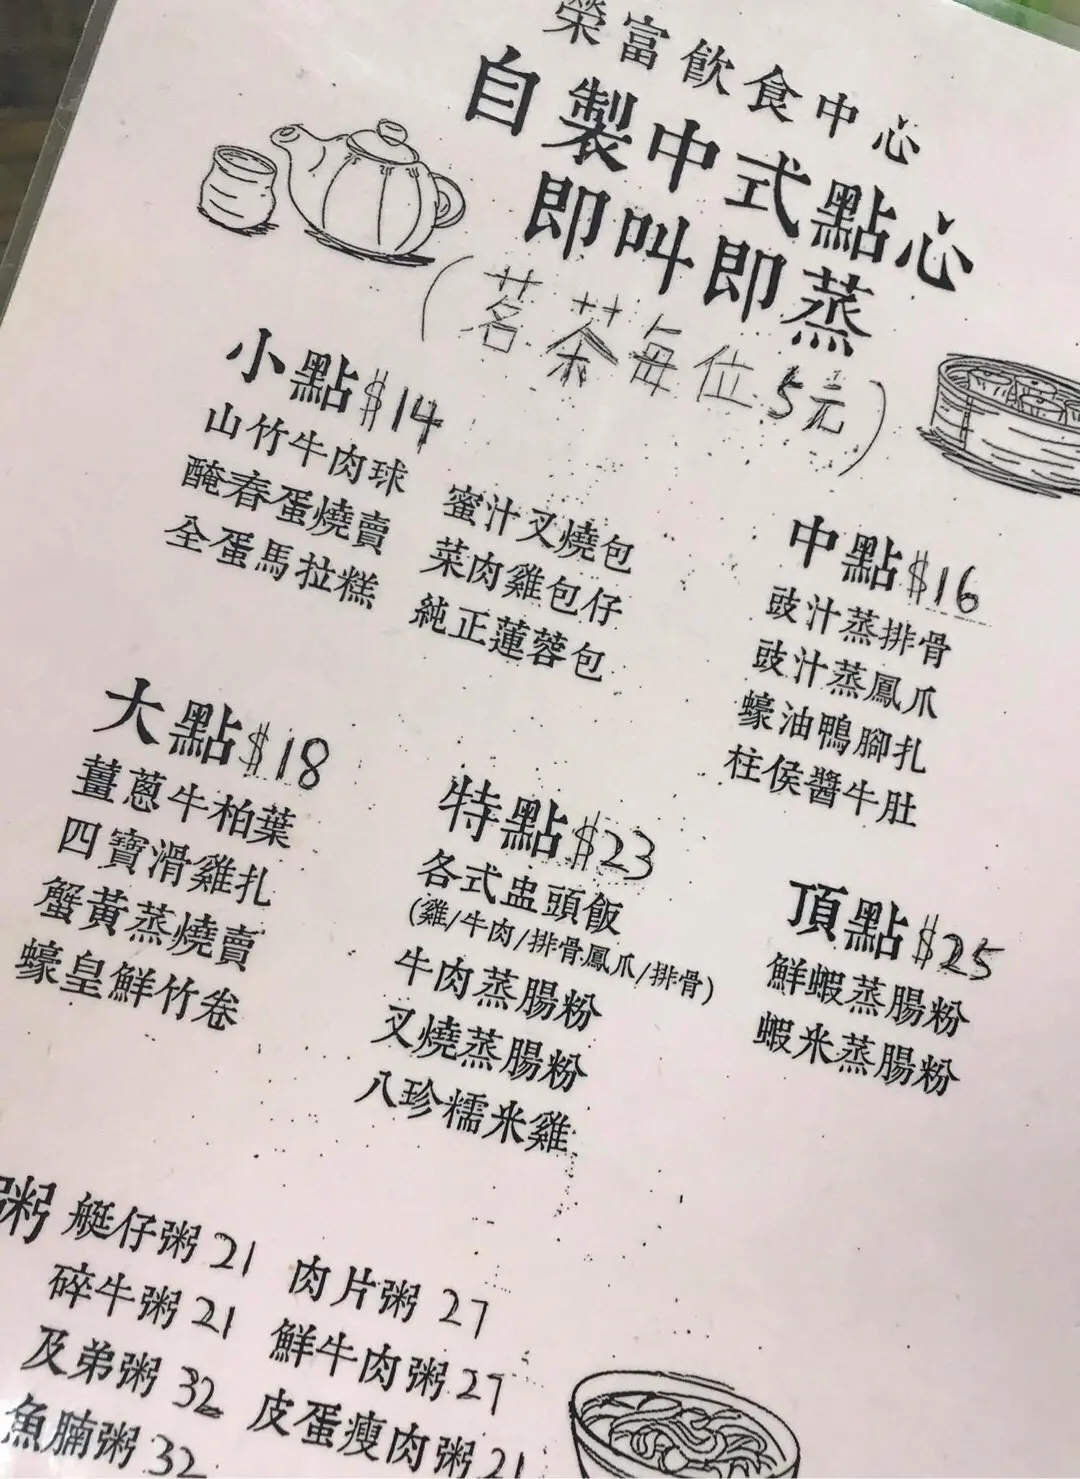 榮富飲食中心
自製中式點心
即叫即蒸
(茗茶每位5元)
小點$14
山竹牛肉球
醃春蛋燒賣
全蛋馬拉糕
蜜汁叉燒包
菜肉雞包仔
純正蓮蓉包
中點$16
豉汁蒸排骨
豉汁蒸鳳爪
蠔油鴨腳扎
柱侯醬牛肚
大點$18
薑蔥牛柏葉
四寶滑雞扎
蟹黃蒸燒賣
蠔皇鮮竹卷
特點$23
各式盅頭飯
(雞/牛肉/排骨鳳爪/排骨)
牛肉蒸腸粉
叉燒蒸腸粉
八珍糯米雞
頂點$25
鮮蝦蒸腸粉
蝦米蒸腸粉
粥
艇仔粥 21
碎牛粥 21
及弟粥 32
魚腩粥 32
肉片粥 27
鮮牛肉粥 27
皮蛋瘦肉粥 21